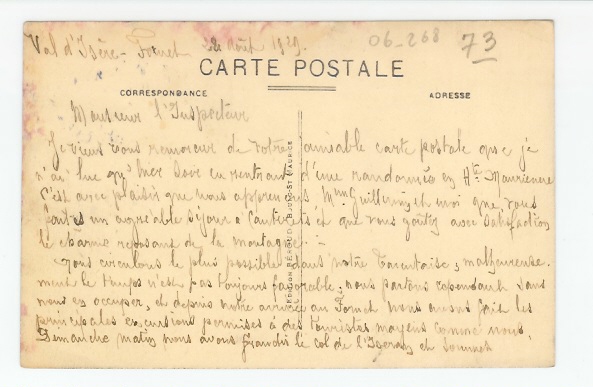 Val d'Isère - Fornet 22 Août 1929.
06-268
73
CARTE POSTALE
CORRESPONDANCE
ADRESSE
Monsieur l'Inspecteur
Je viens vous remercier de votre aimable carte postale que je
n'ai lue qu'hier soir en rentrant d'une randonnée en Hte Maurienne
C'est avec plaisir que nous apprenons, Mme Guillermin et moi que vous
faites un agréable séjour à Cauterets et que vous goûtez avec satisfaction
le charme reposant de la montagne. -
Nous circulons le plus possible dans notre Tarentaise, malheureuse-
ment le temps n'est pas toujours favorable, nous partons cependant sans
nous en occuper, et depuis notre arrivée au Fornet nous avons fait les
principales excursions permises à des touristes moyens comme nous.
Dimanche matin nous avons franchi le col de l'Iseran et sommes
EDITION BÉROUD BOURG-ST-MAURICE